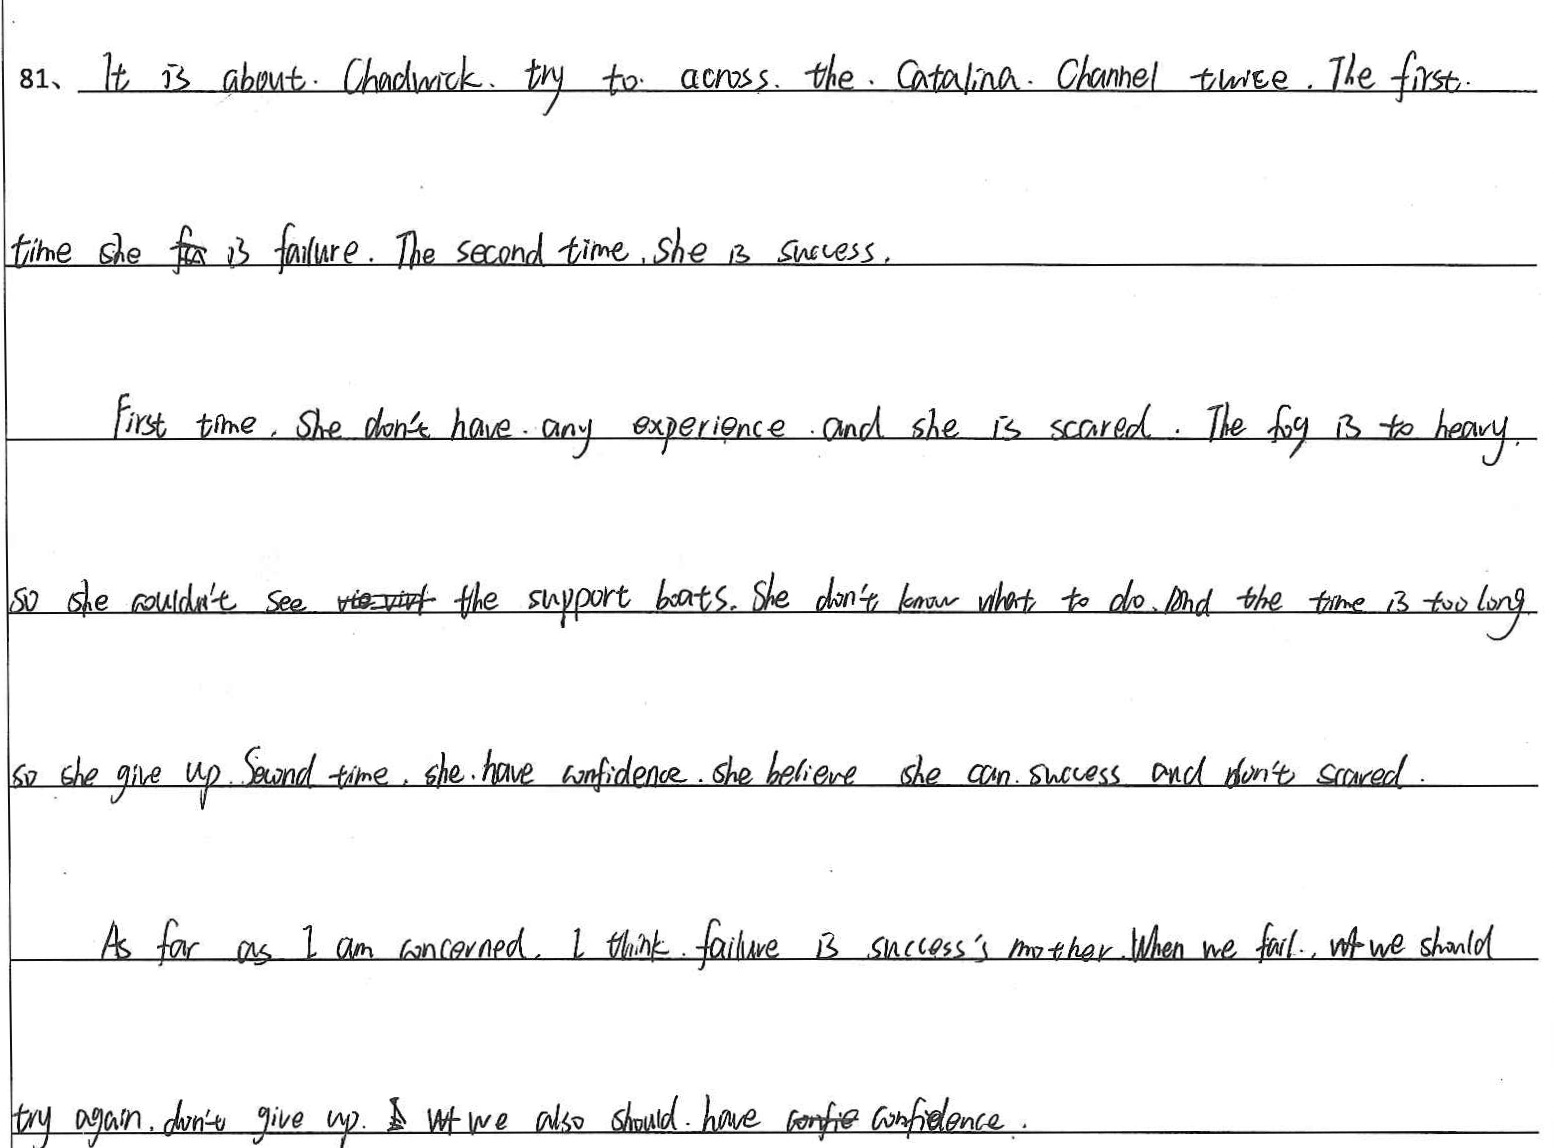 81、 It is about. Chadwick. try to. across. the. Catalina. Channel twice. The first.
time she is failure. The second time, she is success.
First time, she don't have any experience and she is scared. The fog is to heavy,
so she couldn't see the support boats. She don't know what to do. And the time is too long
so she give up. Second time, she have confidence. she believe she can success and don't scared.
As far as I am concerned, I think failure is success's mother. When we fail, we should
try again, don't give up. we also should have confidence.